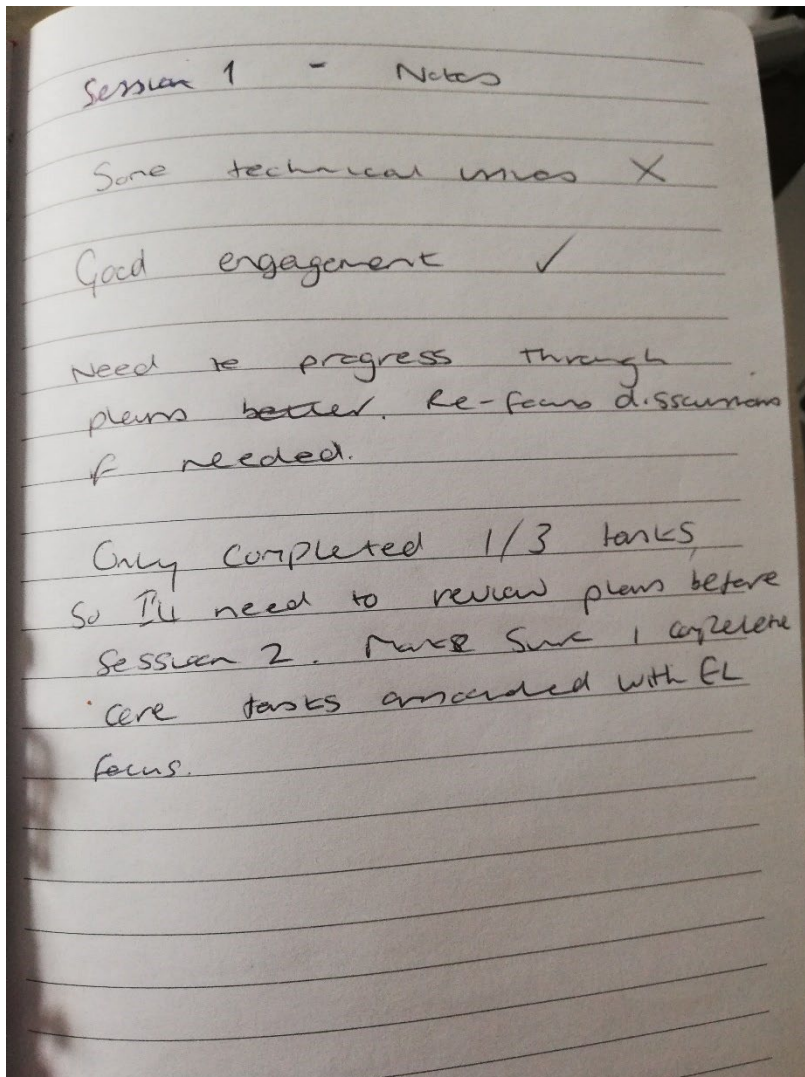 Session 1 - Notes
Some technical issues X
Good engagement ✓
Need to progress through
plans better. Re-focus disscussions
if needed.
Only completed 1/3 tasks,
So I'll need to review plans before
Session 2. Make sure I complete
core tasks associated with EL
focus.